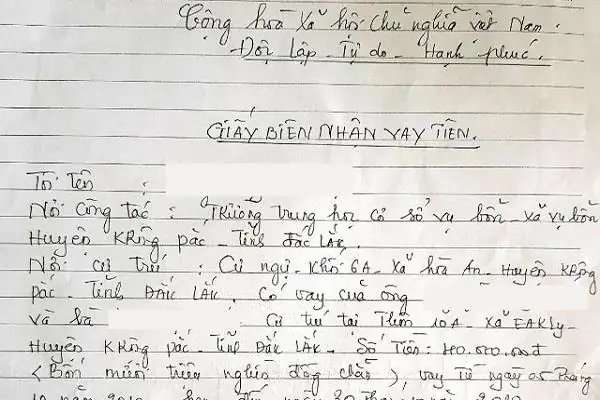 Cộng hoà Xã hội Chủ nghĩa việt Nam.
Độc Lập - Tự do - Hạnh phúc.
GIẤY BIÊN NHẬN VAY TIỀN.
Tôi tên :
Nơi Công tác : Trường trung học cơ sở vụ bổn - xã vụ bổn
Huyện KRông pắc - Tỉnh đắc LắK.
Nơi cư trú : Cư ngụ - Khối 6A - Xã hòa An - Huyện KRông
pắc - Tỉnh ĐẮK LẮK. Có vay của ông
và bà Cư trú tại Thôn 10A - Xã EAKly -
Huyện KRông pắc - Tỉnh Đắk LắK - Số Tiền: 40.000.000đ
(Bốn mươi triệu nghìn đồng chẵn), vay Từ ngày 05 tháng